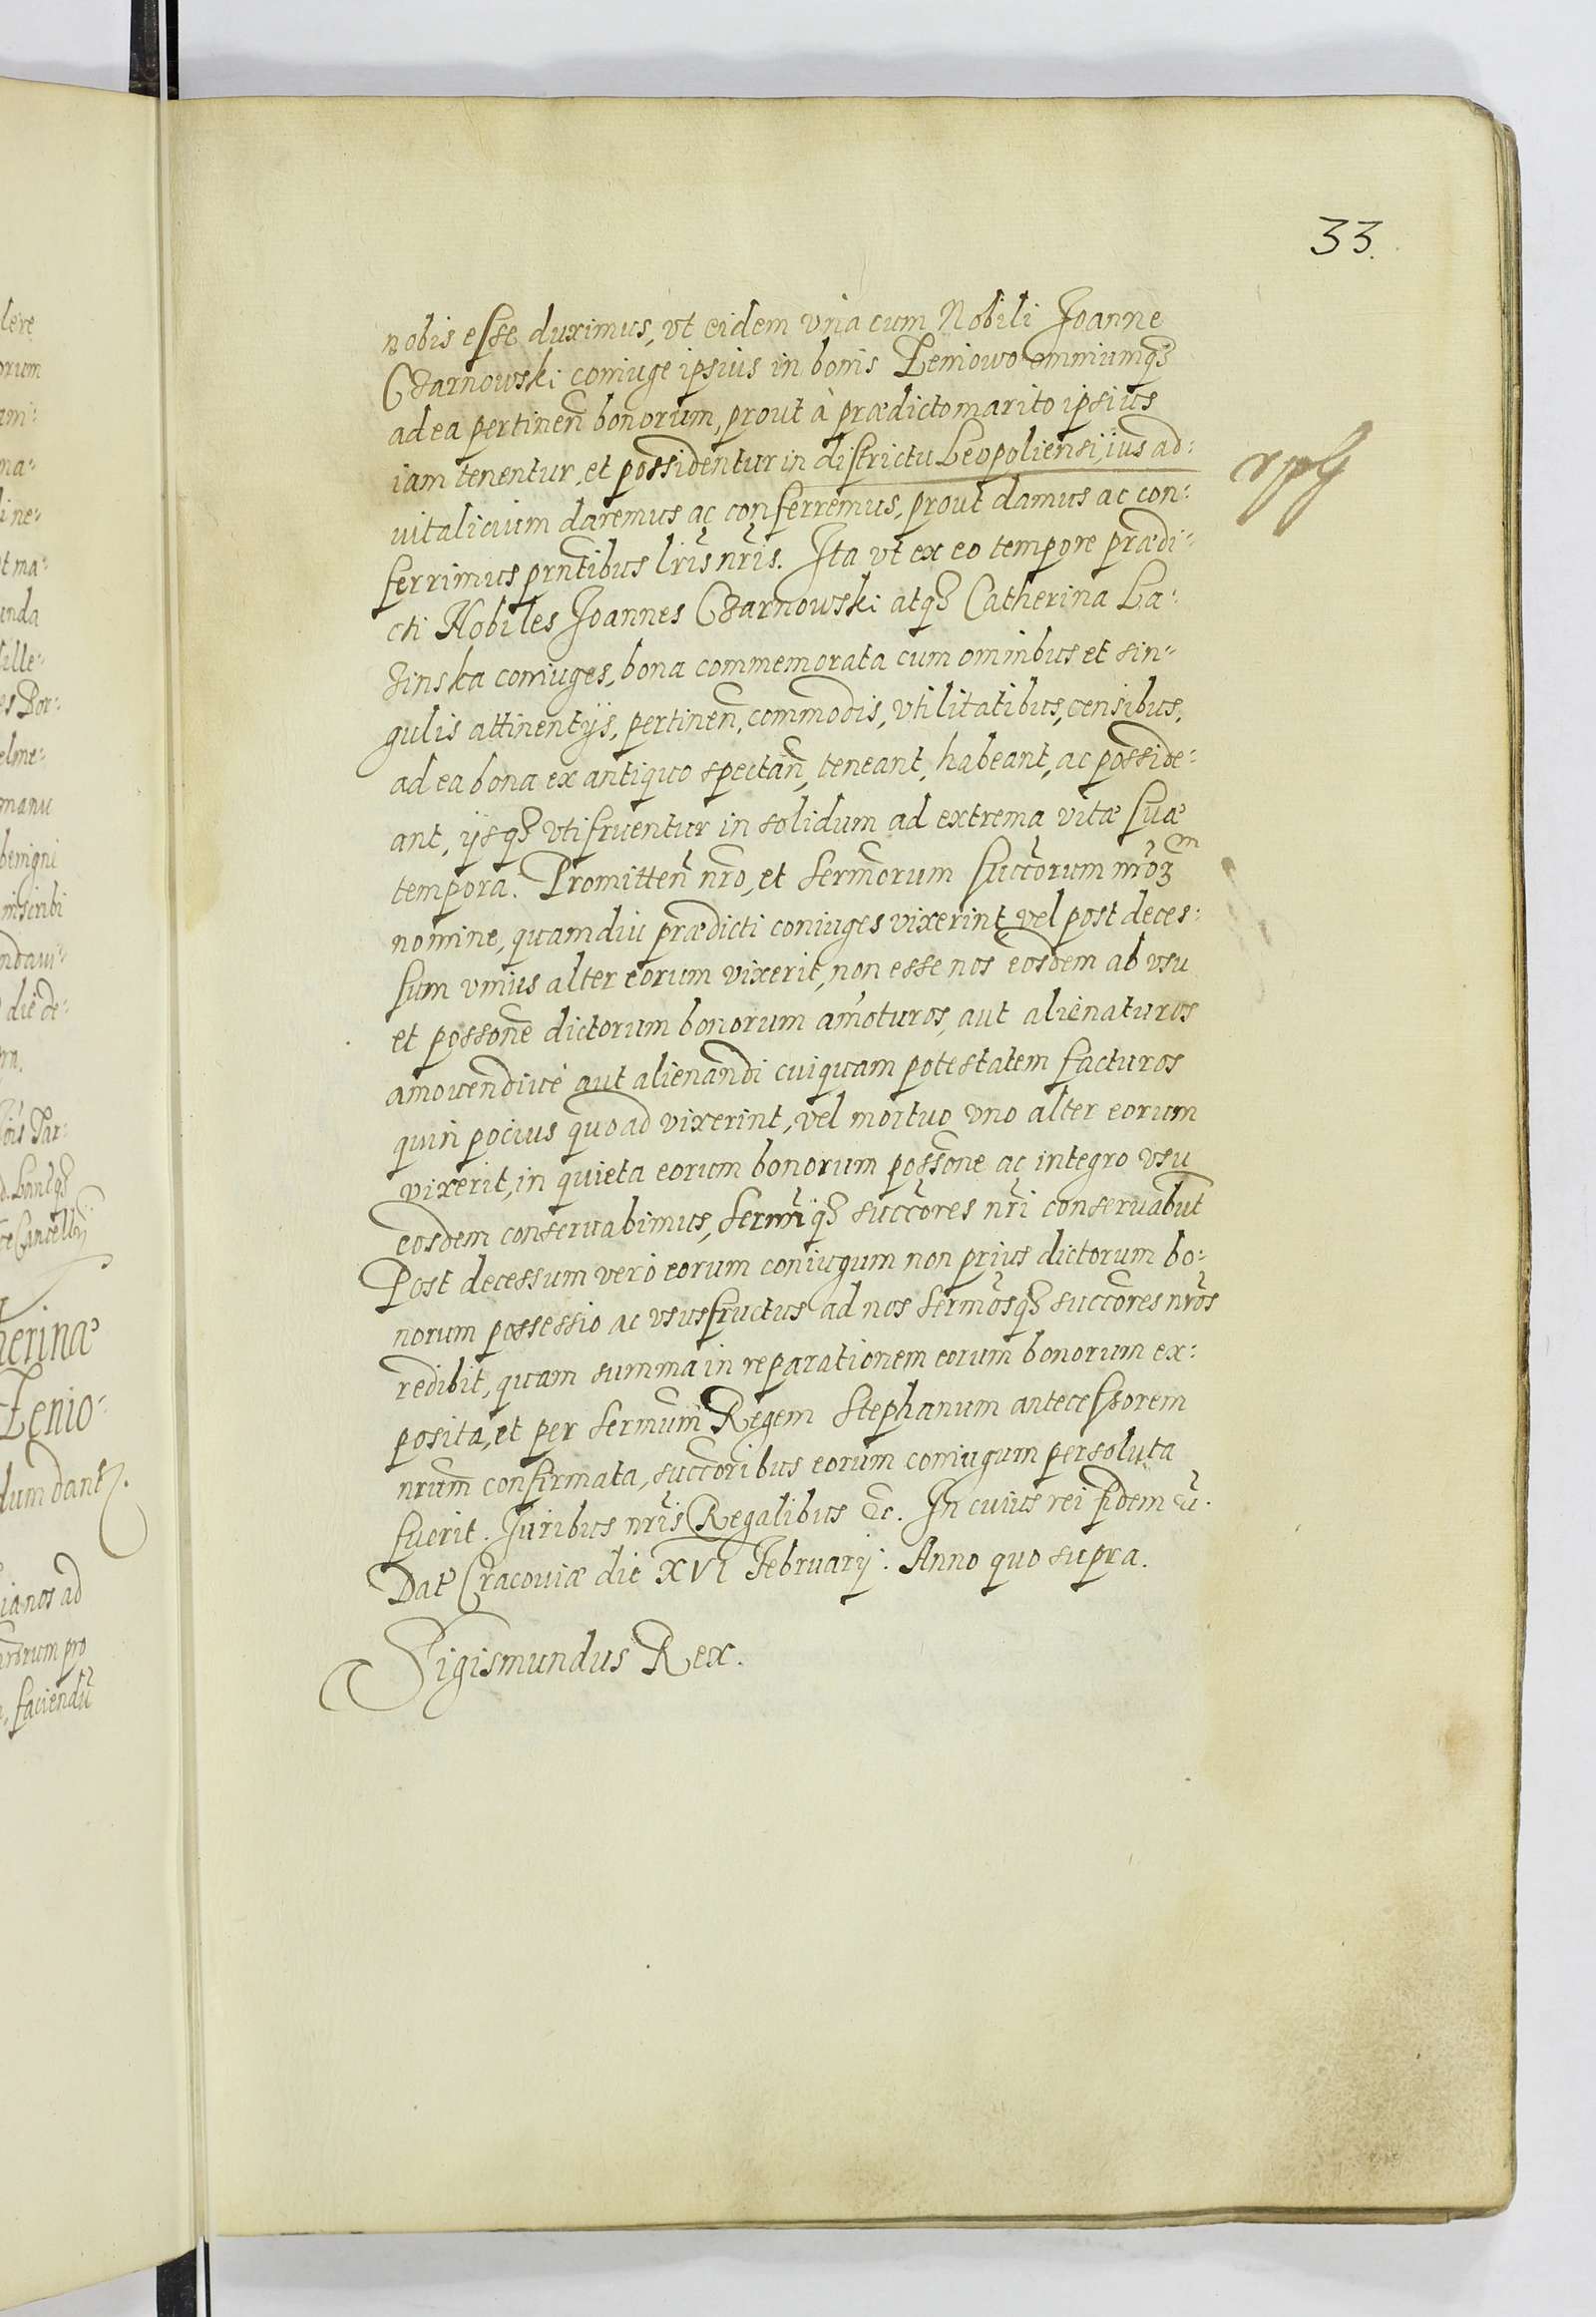 33.
nobis esse duximus, vt eidem vna cum Nobili Joanne
Czarnowski coniuge ipsius in bonis Zeniowo omniumq3
ad ea pertinen̄ bonorum, prout à prædicto marito ipsius
iam tenentur, et possidentur in districtu Leopoliensi, ius ad:
vitalicium daremus ac conferremus, prout damus ac con:
ferrimus prn̄tibus lr̄is nr̄is. Ita vt ex eo tempore prædi:
cti Nobiles Joannes Czarnowski atq3 Catherina La:
zinska coniuges, bona commemorata cum omnibus et sin:
gulis attinentijs, pertinen̄, commodis, vtilitatibus, censibus,
ad ea bona ex antiquo spectan̄, teneant, habeant, ac posside:
ant, ijsq3 vtifruentur in solidum ad extrema vitæ suæ
tempora. Promitten̄ nr̄o, et serm̄orum succ̄orum nr̄o3
nomine, quamdiu prædicti coniuges vixerint, vel post deces:
sum vnius alter eorum vixerit, non esse nos eosdem ab vsu
et posson̄e dictorum bonorum amoturos, aut alienaturos
amouendiue aut alienandi cuiquam potestatem facturos
quin pocius quoad vixerint, vel mortuo vno alter eorum
vixerit, in quieta eorum bonorum posson̄e ac integro vsu
eosdem conseruabimus, serm̄iq3 succ̄ores nr̄i conseruabūt
Post decessum vero eorum coniugum non prius dictorum bo:
norum possessio ac vsusfructus ad nos serm̄osq3 succ̄ores nr̄os
redibit, quam summa in reparationem eorum bonorum ex:
posita, et per serm̄um Regem Stephanum antecessorem
nr̄um confirmata, succ̄oribus eorum coniugum persoluta
fuerit. Juribus nr̄is Regalibus &c. In cuius rei fidem
Dat Cracouiæ die XVI Februarij. Anno quo supra.
Sigismundus Rex.